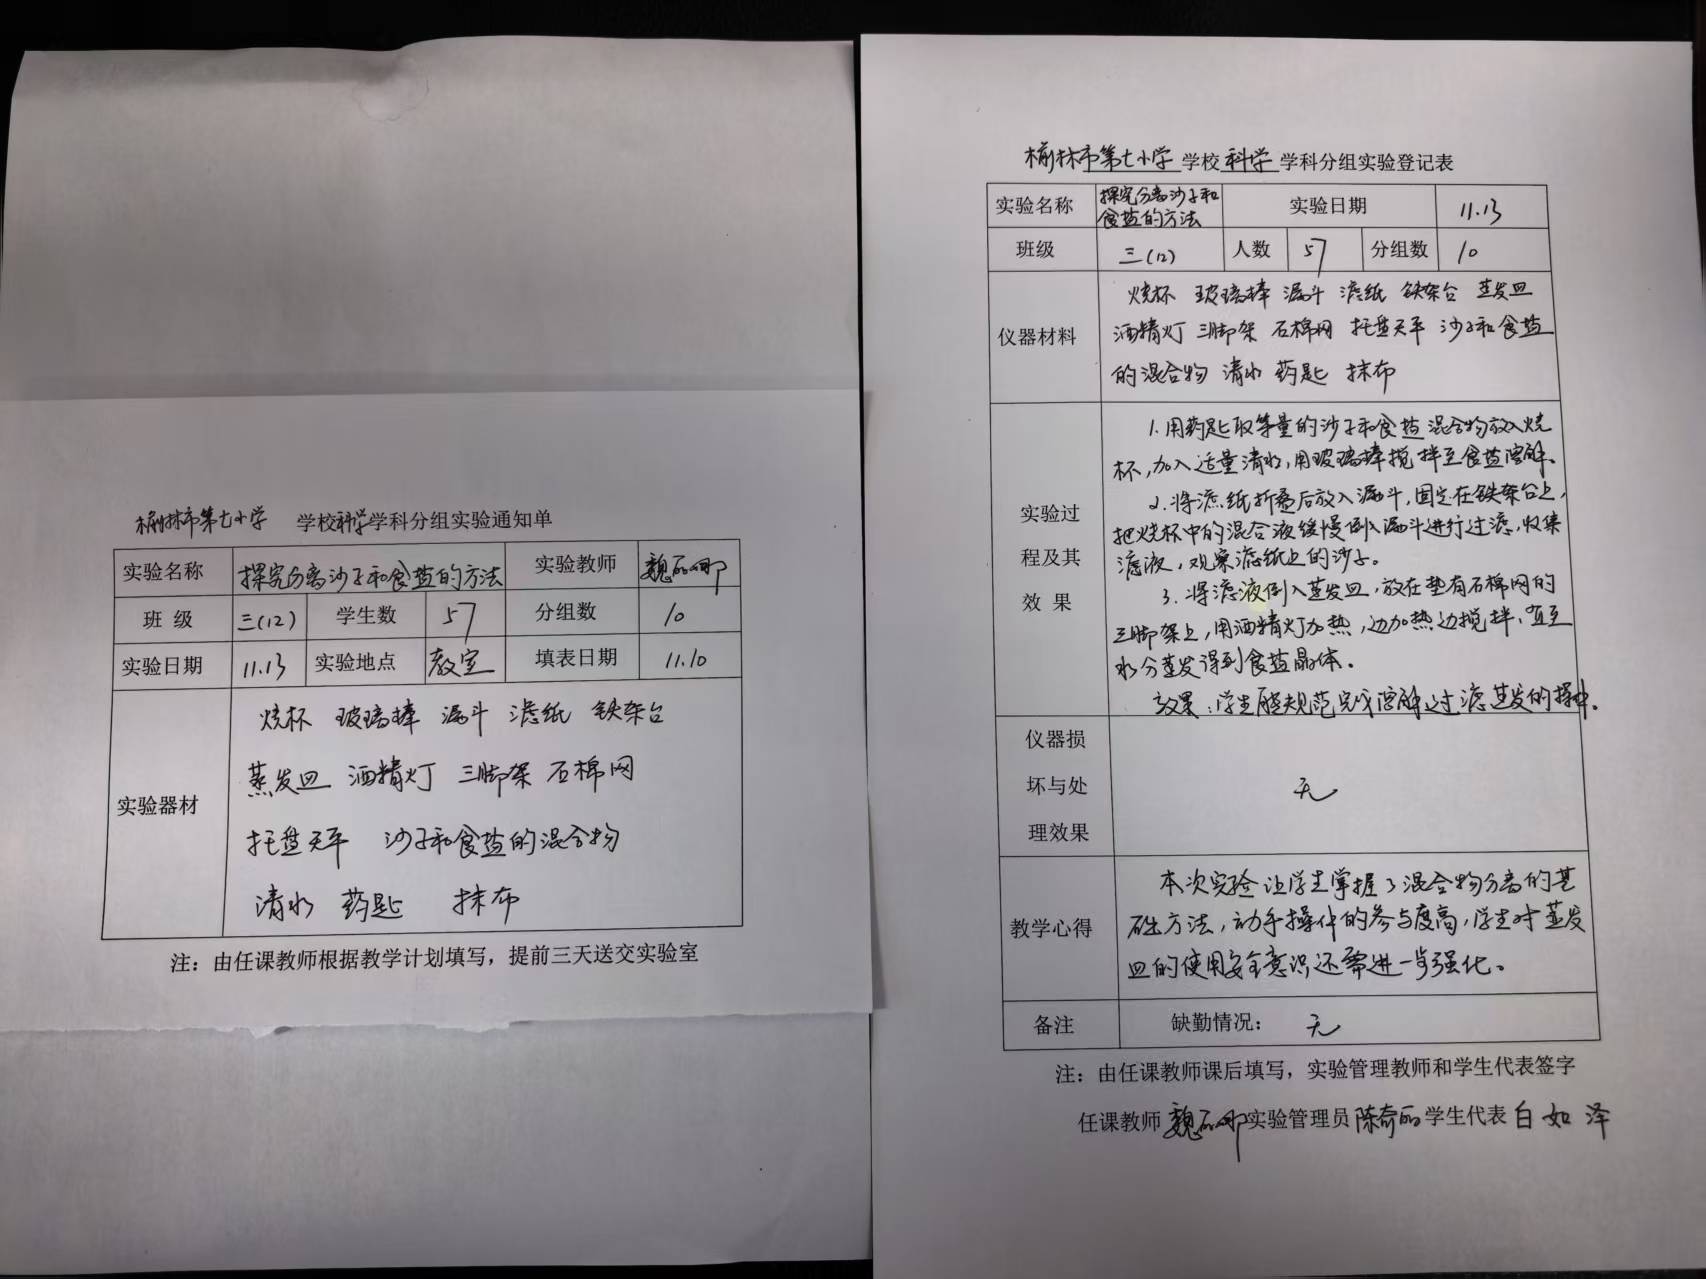 榆林市第七小学 学校科学学科分组实验通知单
实验名称 探究分离沙子和食盐的方法 实验教师 魏丽娜
班 级 三(12) 学生数 57 分组数 10
实验日期 11.13 实验地点 教室 填表日期 11.10
实验器材
烧杯 玻璃棒 漏斗 滤纸 铁架台
蒸发皿 酒精灯 三脚架 石棉网
托盘天平 沙子和食盐的混合物
清水 药匙 抹布
注：由任课教师根据教学计划填写，提前三天送交实验室
榆林市第七小学 学校 科学 学科分组实验登记表
实验名称 探究分离沙子和
食盐的方法 实验日期 11.13
班级 三(12) 人数 57 分组数 10
仪器材料
烧杯 玻璃棒 漏斗 滤纸 铁架台 蒸发皿
酒精灯 三脚架 石棉网 托盘天平 沙子和食盐
的混合物 清水 药匙 抹布
实验过
程及其
效 果
1.用药匙取等量的沙子和食盐混合物放入烧
杯,加入适量清水,用玻璃棒搅拌至食盐溶解。
2.将滤纸折叠后放入漏斗,固定在铁架台上,
把烧杯中的混合液缓慢倒入漏斗进行过滤,收集
滤液,观察滤纸上的沙子。
3.将滤液倒入蒸发皿,放在垫有石棉网的
三脚架上,用酒精灯加热,边加热边搅拌,直至
水分蒸发得到食盐晶体。
效果:学生能规范完成溶解过滤蒸发的操作。
仪器损
坏与处
理效果
无
教学心得
本次实验让学生掌握了混合物分离的基
础方法,动手操作的参与度高,学生对蒸发
皿的使用安全意识还需进一步强化。
备注 缺勤情况： 无
注：由任课教师课后填写，实验管理教师和学生代表签字
任课教师 魏丽娜 实验管理员 陈奇丽 学生代表 白如泽